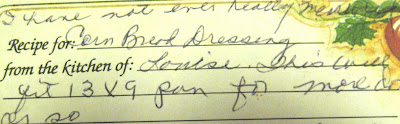 I have not ever really measured
Recipe for: Corn Bread Dressing
from the kitchen of: Louise. This will
get 13 X 9 pan for more
or so